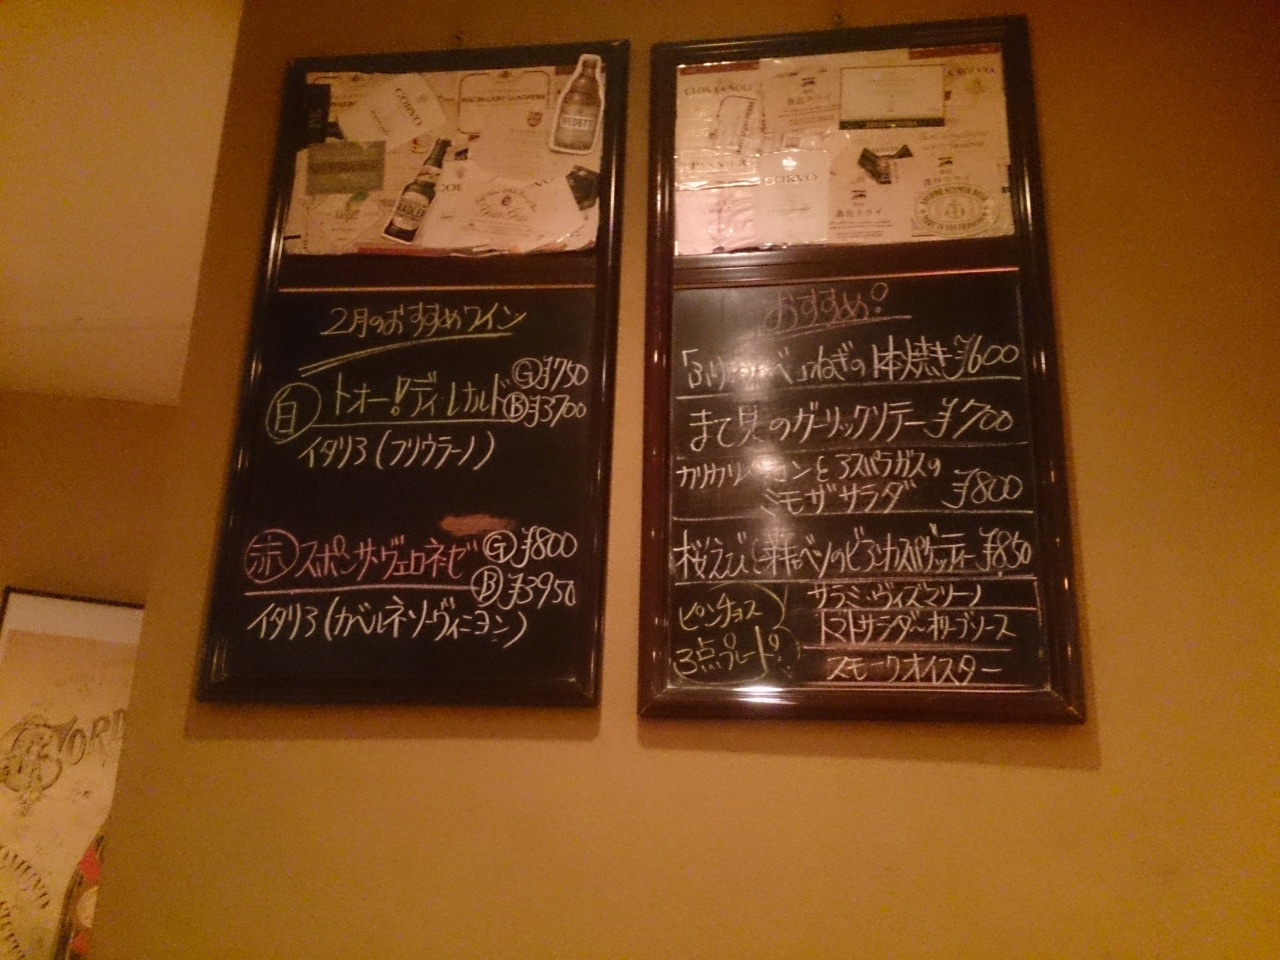 CORVO
VEDETT
RADLER
2月のおすすめワイン
白 トオー!ディ・レカルド G ¥750
B ¥3700
イタリア(フリウラーノ)
赤 スポンサ・ヴェロネーゼ G ¥800
B ¥3950
イタリア(カベルネソーヴィニヨン)
CORVO
おすすめ!
ねぎの1本焼き ¥600
まて貝のガーリックソテー ¥700
カリカリ と アスパラガスの
ミモザサラダ ¥800
桜えびと キャベツのビアンカスパゲッティー ¥850
ピンチョス
3点プレート!
サラミ・ヴィズマリーノ
トマトサラダ〜オリーブソース
スモークオイスター